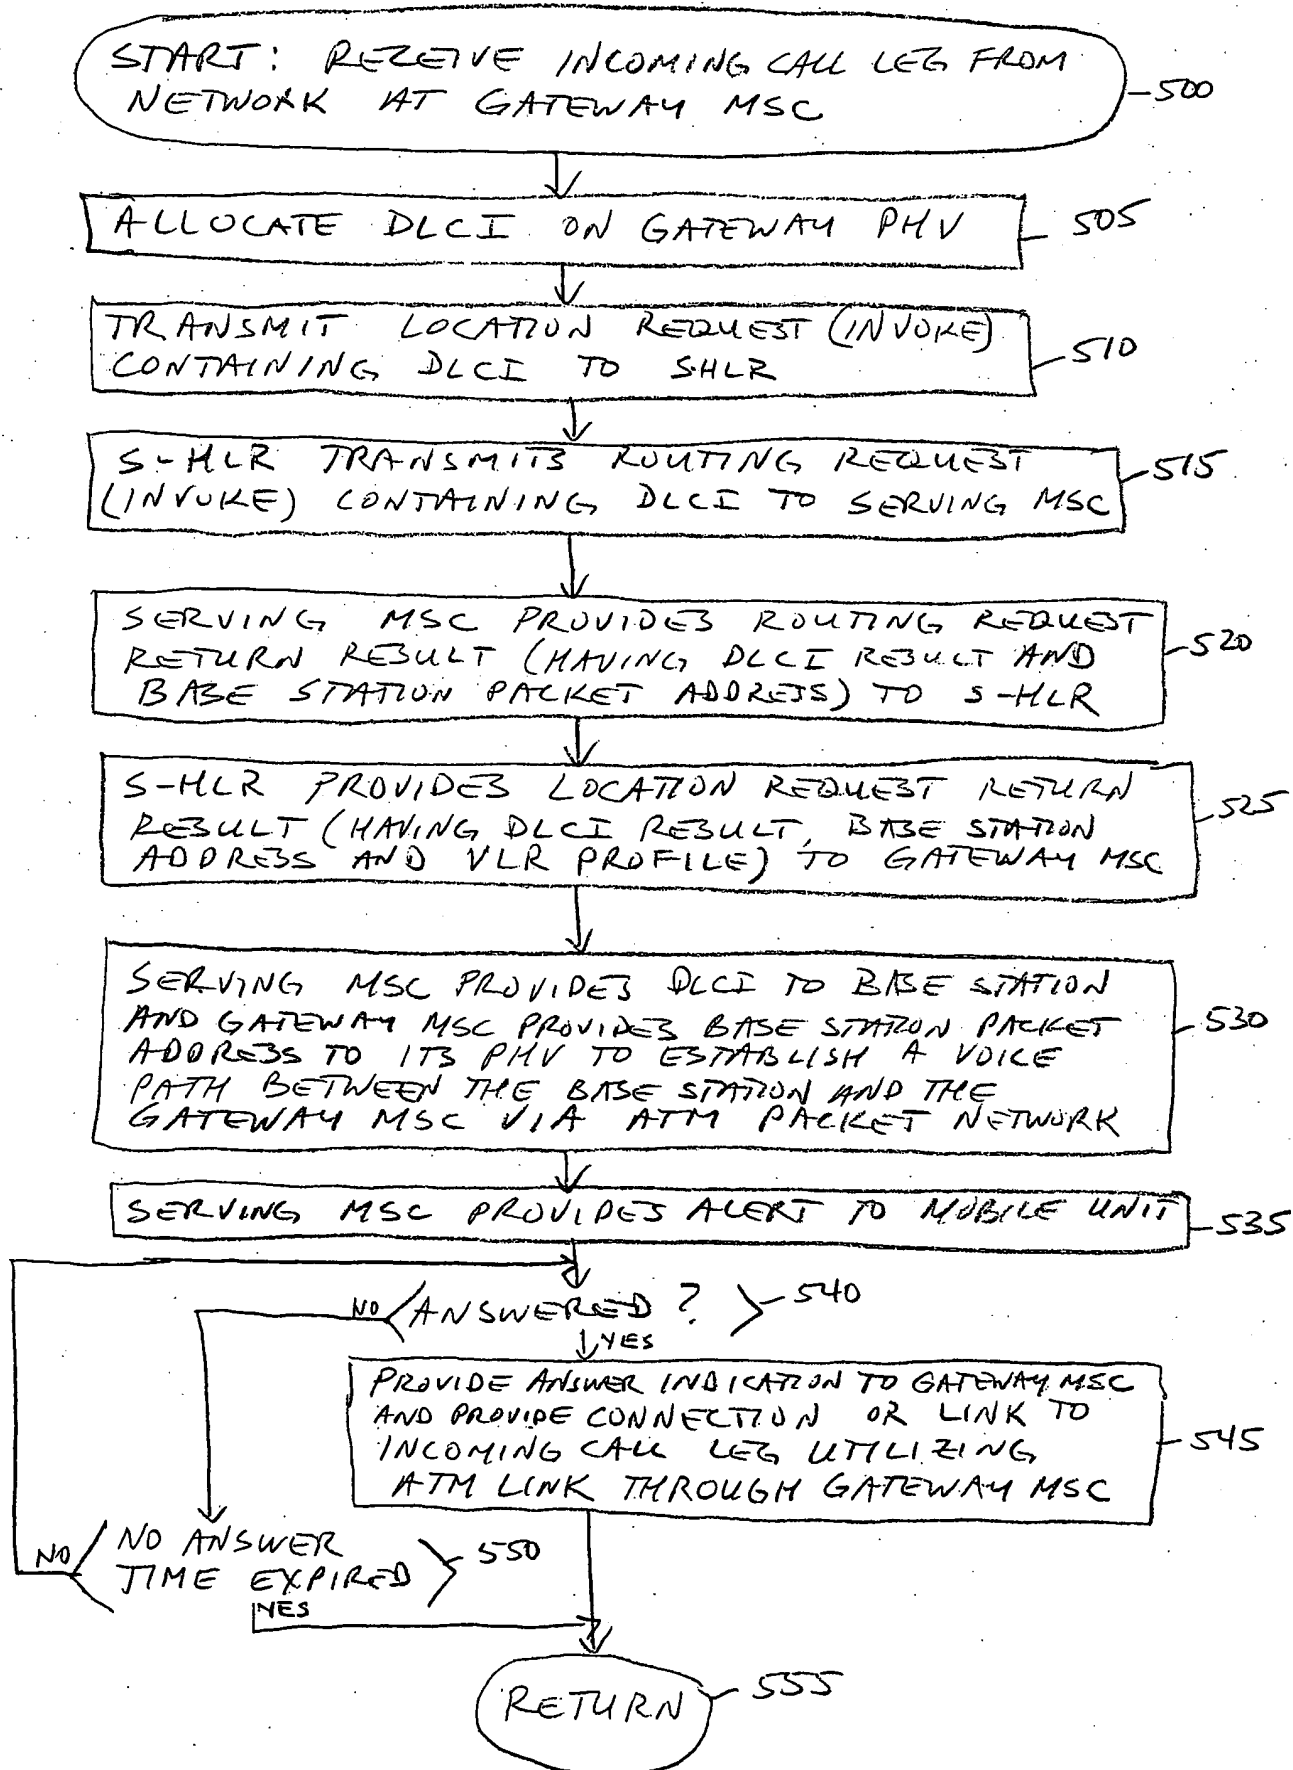 START: RECEIVE INCOMING CALL LEG FROM
NETWORK AT GATEWAY MSC
500
ALLOCATE DLCI ON GATEWAY PHV
505
TRANSMIT LOCATION REQUEST (INVOKE)
CONTAINING DLCI TO S-HLR
510
S-HLR TRANSMITS ROUTING REQUEST
(INVOKE) CONTAINING DLCI TO SERVING MSC
515
SERVING MSC PROVIDES ROUTING REQUEST
RETURN RESULT (HAVING DLCI RESULT AND
BASE STATION PACKET ADDRESS) TO S-HLR
520
S-HLR PROVIDES LOCATION REQUEST RETURN
RESULT (HAVING DLCI RESULT, BASE STATION
ADDRESS AND VLR PROFILE) TO GATEWAY MSC
525
SERVING MSC PROVIDES DLCI TO BASE STATION
AND GATEWAY MSC PROVIDES BASE STATION PACKET
ADDRESS TO ITS PHV TO ESTABLISH A VOICE
PATH BETWEEN THE BASE STATION AND THE
GATEWAY MSC VIA ATM PACKET NETWORK
530
SERVING MSC PROVIDES ALERT TO MOBILE UNIT
535
NO
ANSWERED ?
540
YES
PROVIDE ANSWER INDICATION TO GATEWAY MSC
AND PROVIDE CONNECTION OR LINK TO
INCOMING CALL LEG UTILIZING
ATM LINK THROUGH GATEWAY MSC
545
NO
NO ANSWER
TIME EXPIRED
550
YES
RETURN
555